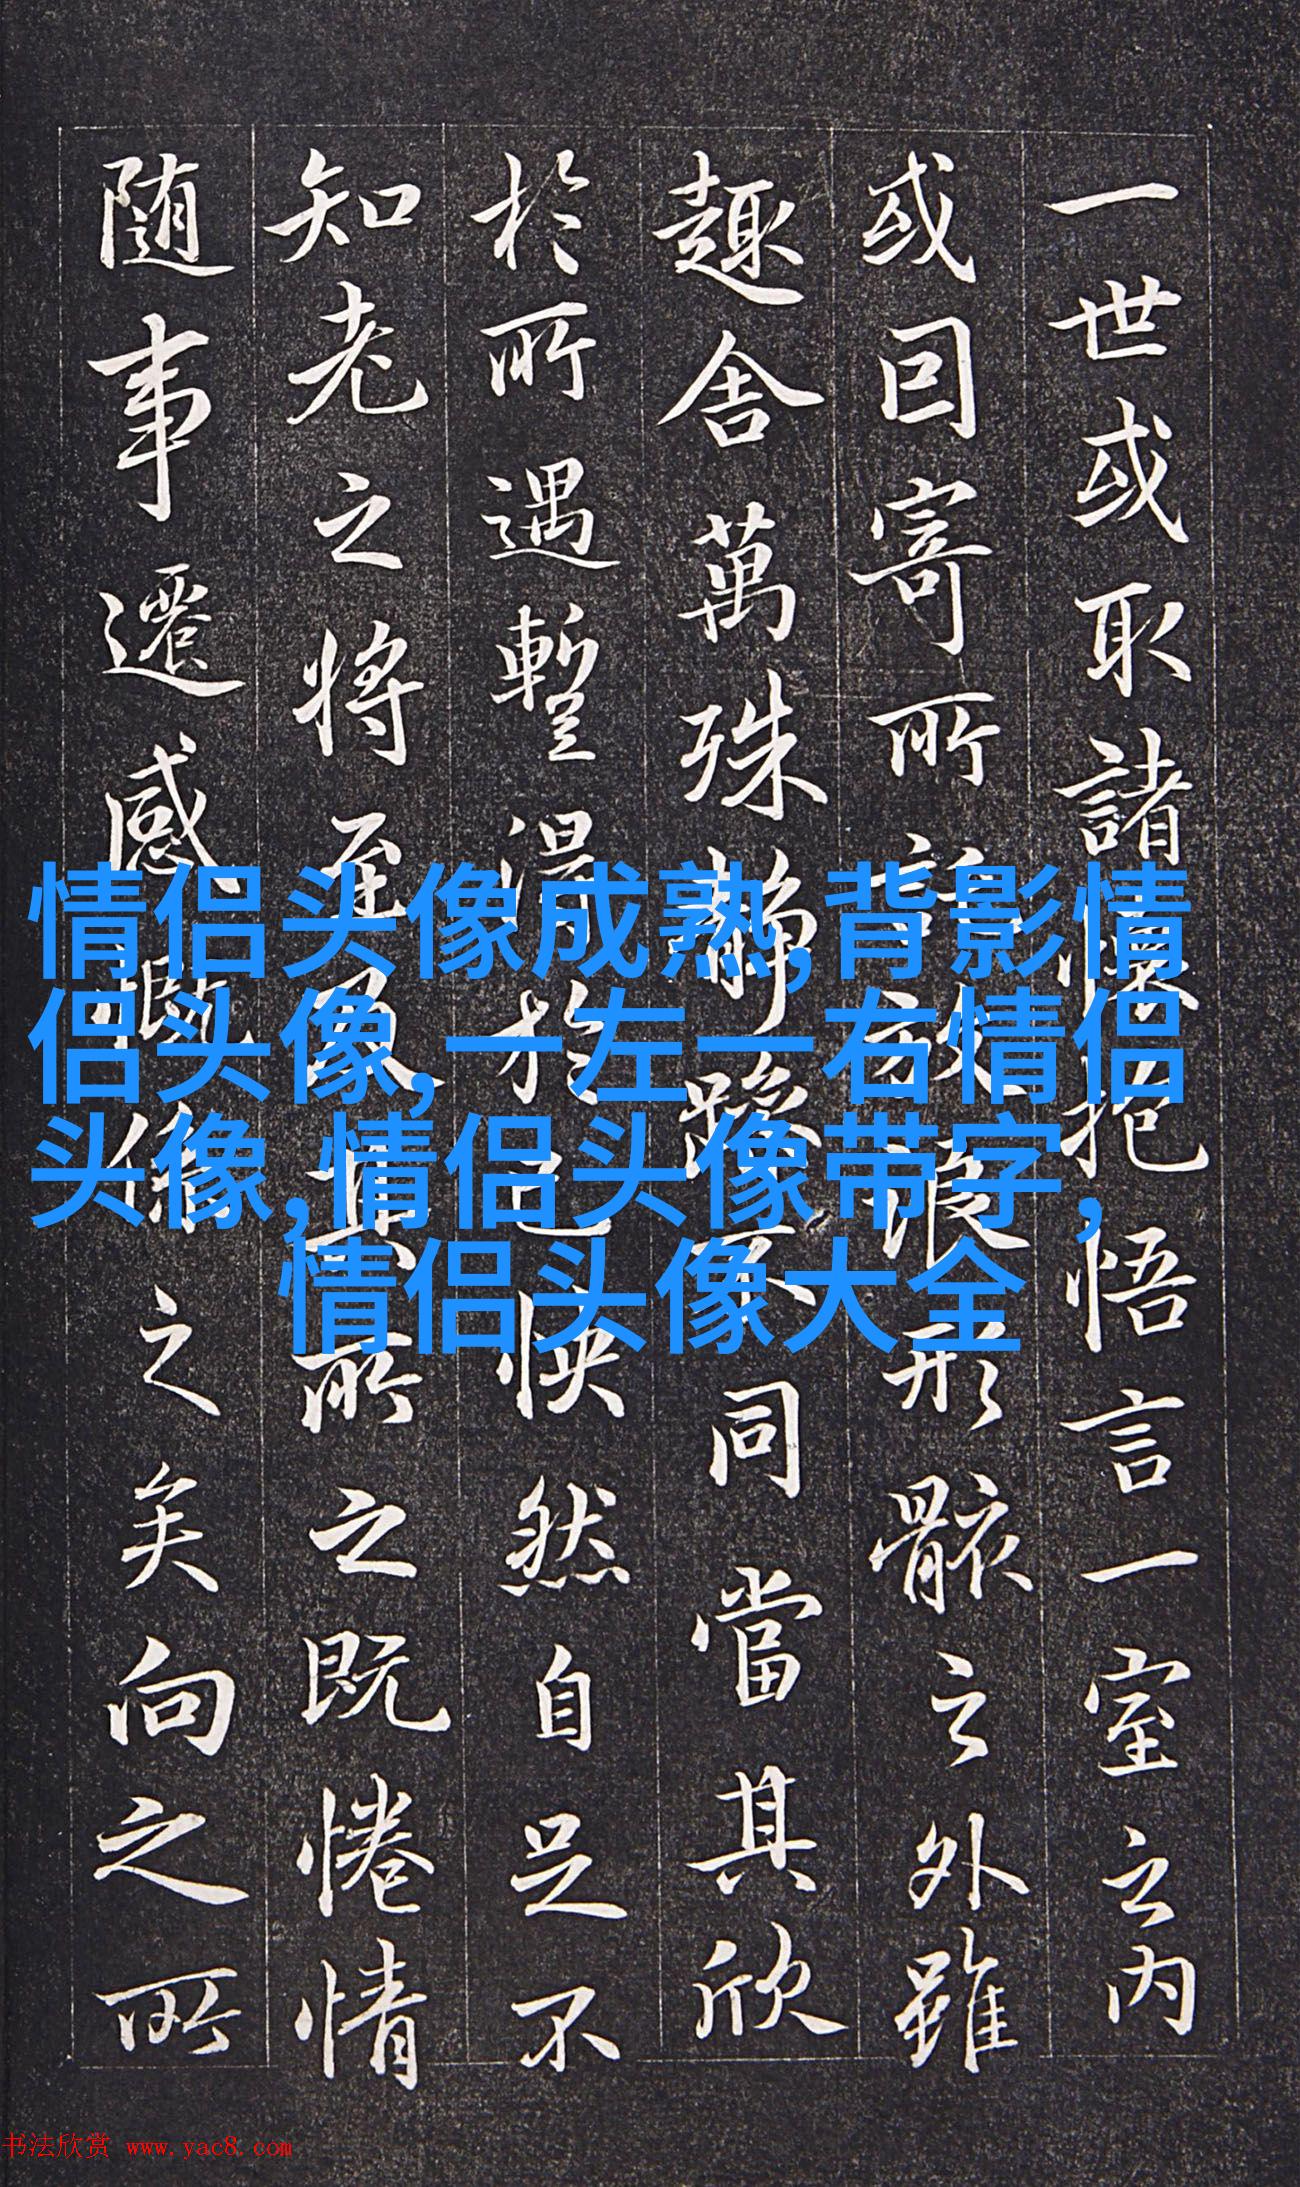 一世或取諸懷抱悟言一室之内
或囙寄所託放浪形骸之外雖
趣舍萬殊静躁不同當其欣
於所遇暫得於己怏然自足不
知老之將至及其所之既惓情
随事遷感慨係之矣向之所
情侣头像成熟,背影情
侣头像,一左一右情侣
头像,情侣头像带字,
情侣头像大全
书法欣赏 www.yac8.com